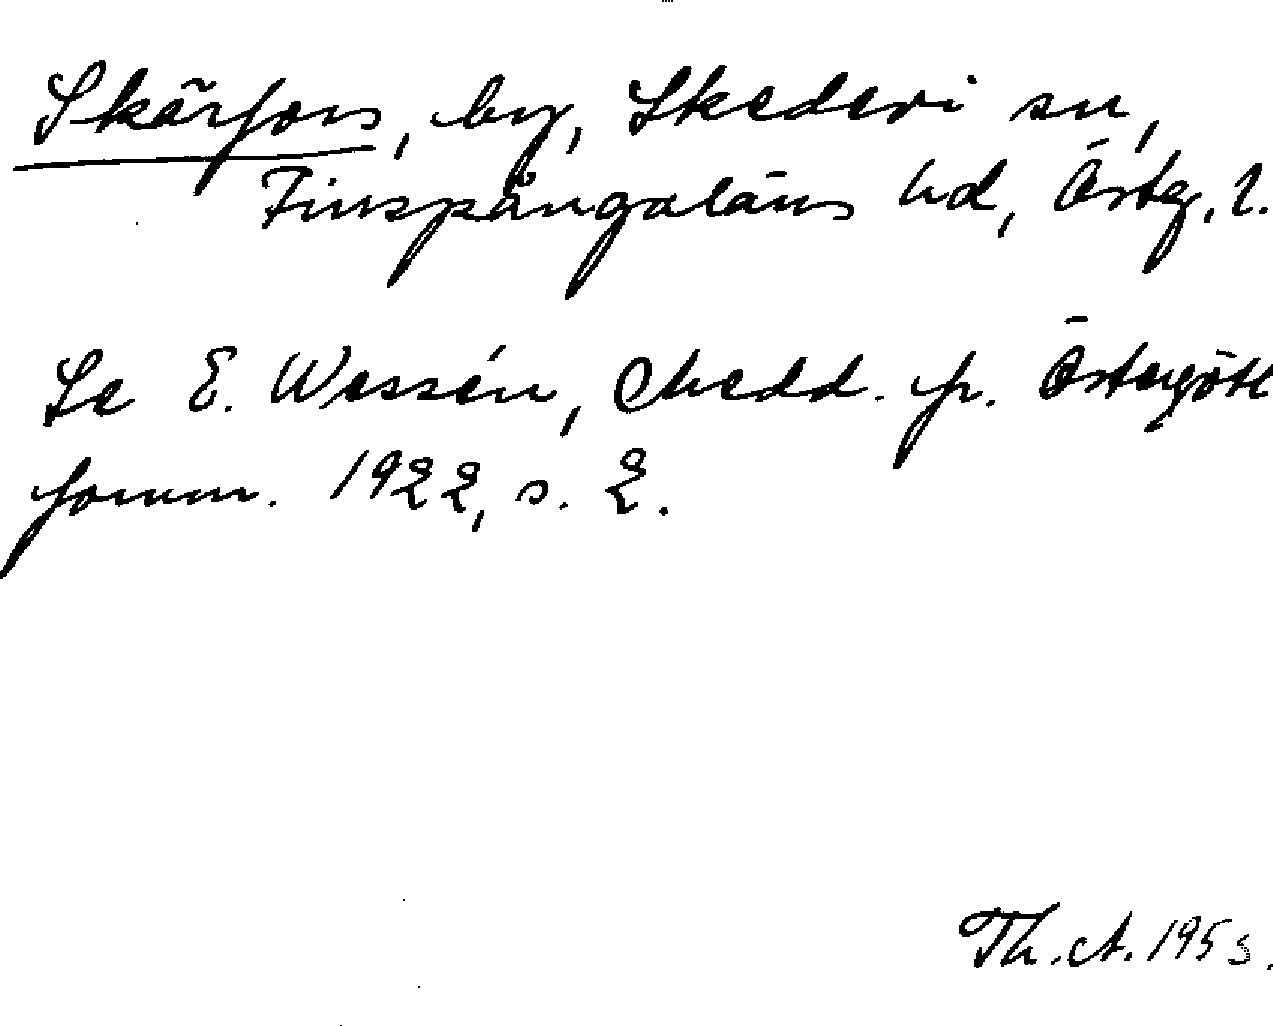 Skärfors, by, Skedevi sn,
Finspångaläns hd, Östg. l.
Se E. Wessén, Medd. fr. Östergötl
fornm. 1922, s. 2.
Th. A. 1955.